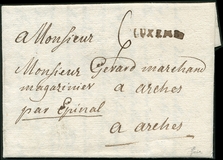 LUXEMB
a Monsieur
Monsieur Gerard marchand
magazinier a arches
par Epinal
a arches